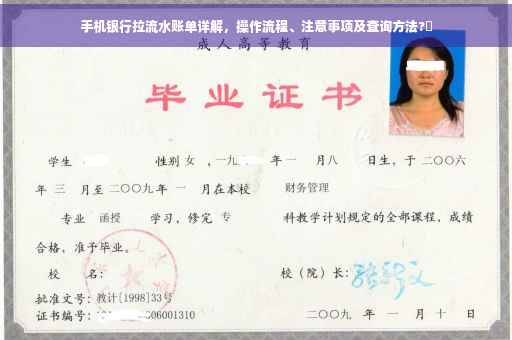 手机银行拉流水账单详解，操作流程、注意事项及查询方法?
成人高等教育
毕业证书
学生 性别 女 ，一九 年 一 月 八 日生，于 二〇〇六
年 三 月至 二〇〇九 年 一 月在本校 财务管理
专业 函授 学习，修完 专 科教学计划规定的全部课程，成绩
合格，准予毕业。
校 名： 校（院）长：
批准文号：教计[1998]33号
证书编号： 06001310 二〇〇九 年 一 月 十 日